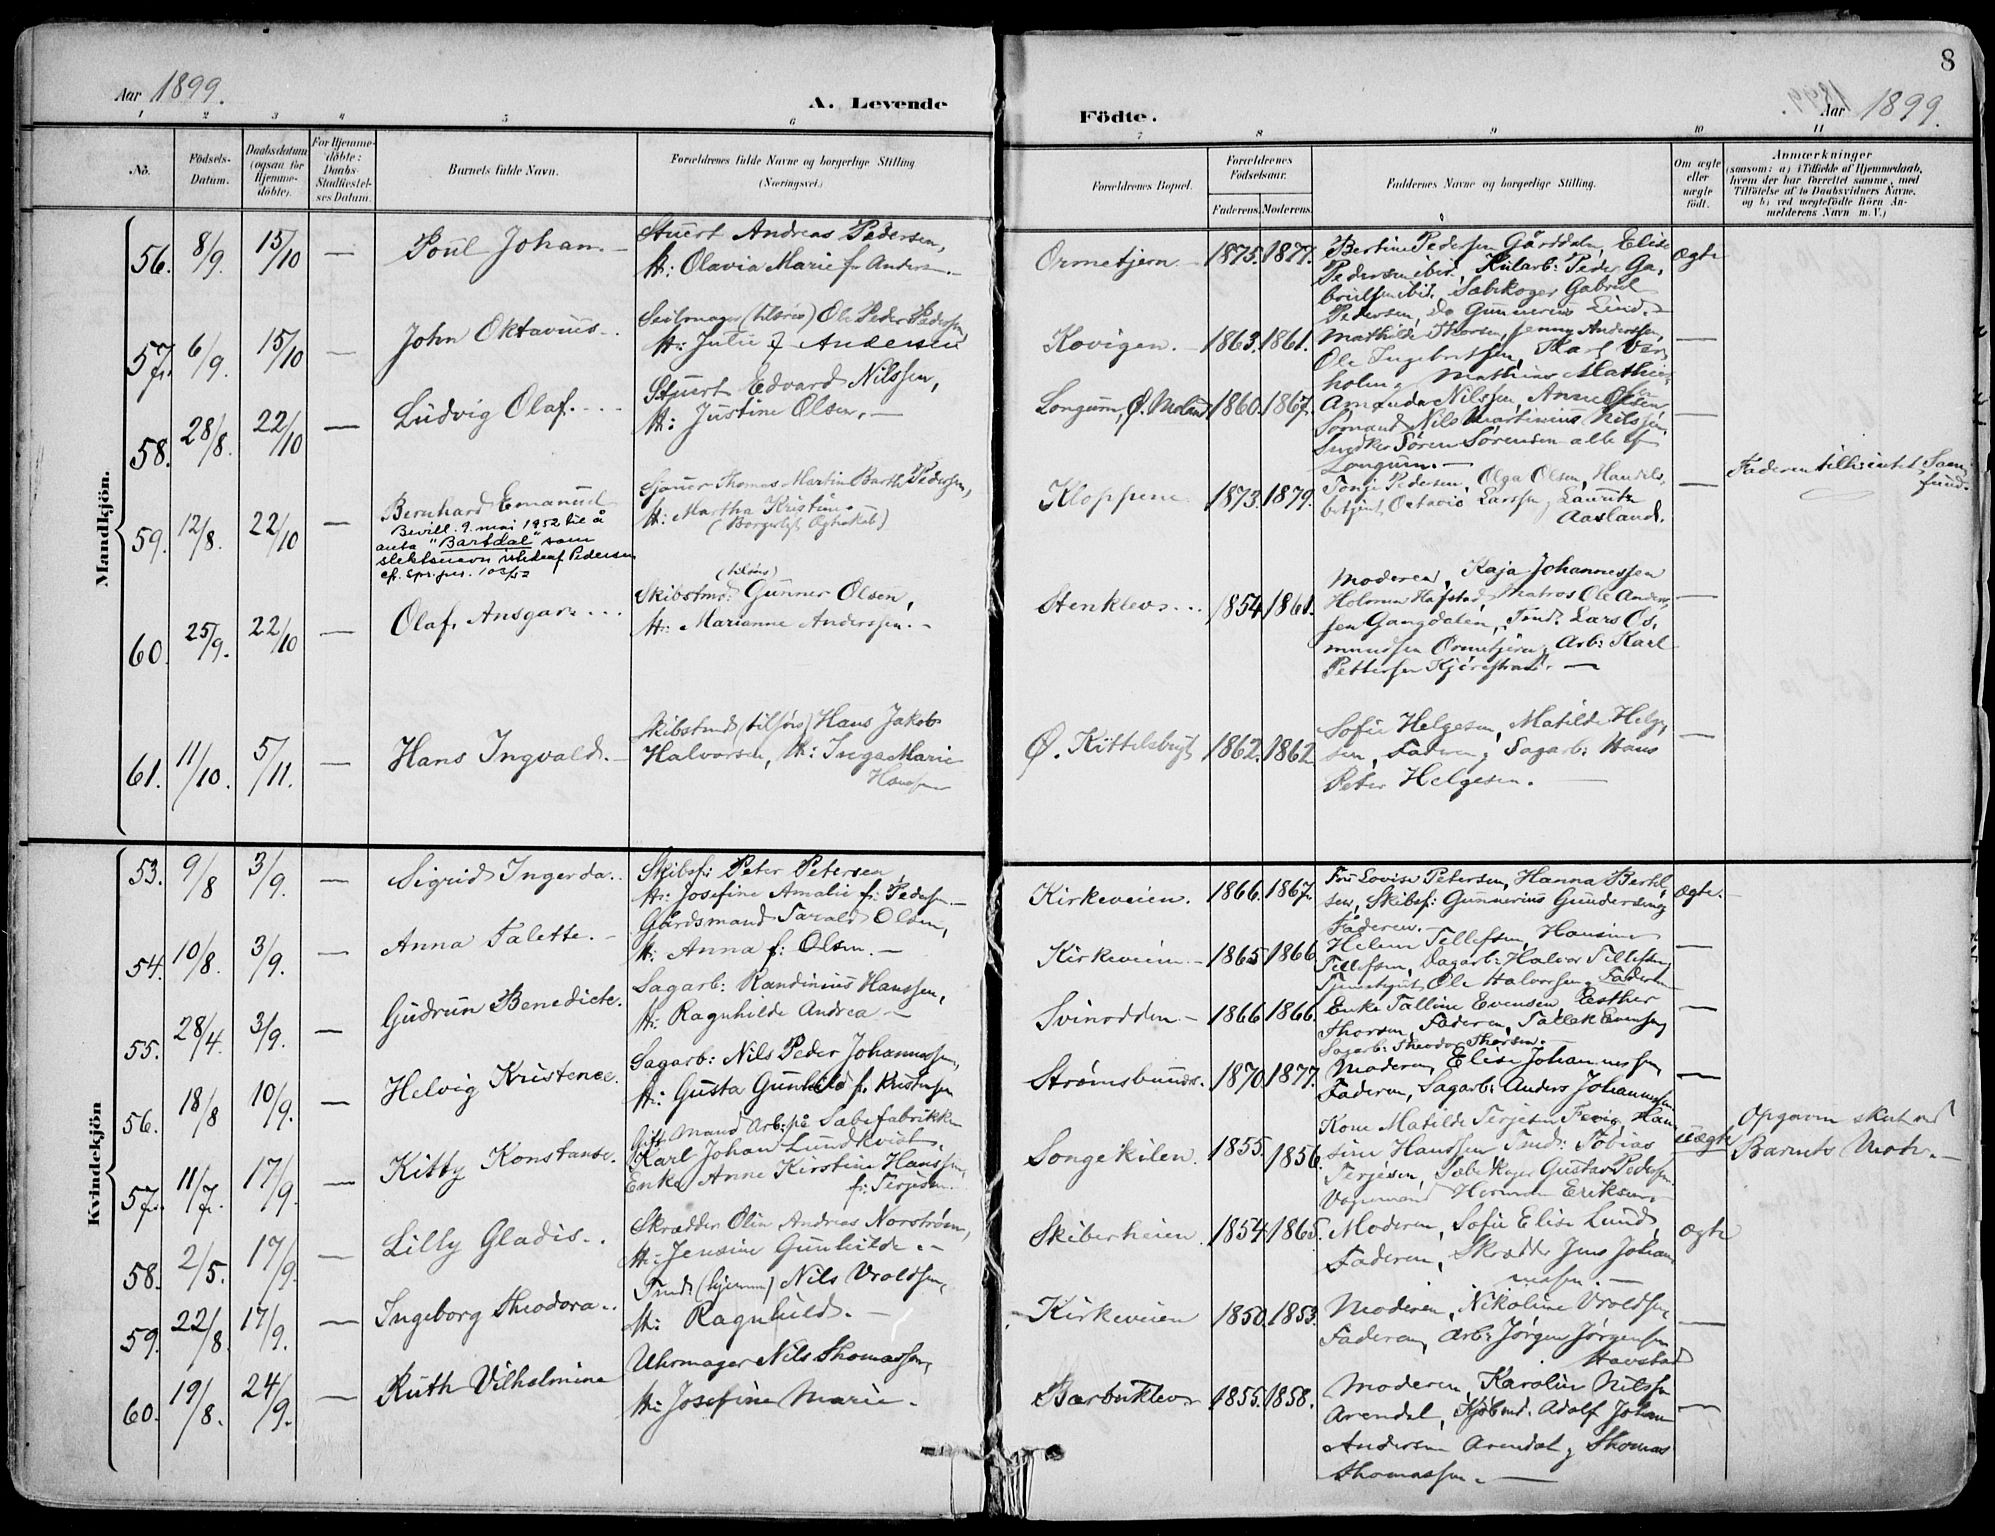 8
Aar 1899.
A. Levende
Födte.
Aar 1899.
1 2 3 4 5 6 7 8 9 10 11
No.
Födsels-
Datum.
Daabsdatum
(ogsaa for
Hjemme-
döbte).
For Hjemme-
döbte:
Daabs-
Stadfæstel-
ses Datum.
Barnets fulde Navn.
Forældrenes fulde Navne og borgerlige Stilling
(Næringsvei.)
Forældrenes Bopæl.
Forældrenes
Födselsaar.
Faderens. Moderens.
Faddernes Navne og borgerlige Stilling.
Om ægte
eller
uægte
födt.
Anmærkninger
(saasom: a) i Tilfælde af Hjemmedaab,
hvem der har forrettet samme, med
Tilföielse af to Daabsvidners Navne,
og b) ved uægtefödte Börn An-
melderens Navn m. V.)
Mandkjön.
56. 8/9. 15/10 — Poul Johan. —
Stuert Andreas Pedersen,
H: Olavia Marie f. Anders
Ormetjern — 1875. 1877.
Bertine Pedersen Gårddalen, Elise
Pedersen ibid, Kularb: Peder Ga-
brielsen ibid, Sæbekoger Gabriel
Pedersen, Do Gunnerius Lind. —
Ægte
57. 6/9. 15/10 — John Oktavius.
Seilmager (tilsøis) Ole Peder Pedersen
H: Julie f. Andersen
Kovigen. — 1863. 1861.
Mathilde Thorsen, Jenny Anderssen,
Ole Ingebretsen, Karl
—
58. 28/8. 22/10 — Ludvig Olaf.
Stuert Edvard Nilssen,
H: Justine Olsen. —
Longum, Ø. Moland 1860. 1867.
Amanda Nilssen, Anne Olsen
Sømand Nils Martinius Nilssen
Snedker Søren Sørensen alle af
Longum. —
—
59. 12/8. 22/10 — Bernhard Emanuel
Bevill. 9. mai 1952 til å
anta "Bartdal" som
slektsnavn istedenf Pedersen
cf. spr.prn. 103/52
Sjauer Thomas Martin Barth Pedersen,
H: Martha Kristine.
(Borgerligt Ægteskab)
Kloppene 1873. 1879.
Tonje Pedersen, Olga Olsen, Handels-
betjent Octavio Larssen, Lauritz
Aasland.
—
Faderen tilh: intet Sam-
fund.
60. 25/9. 22/10 — Olaf Ansgar
(tilsøis)
Skibstmd: Gunner Olsen,
H: Marianne Anderssen. —
Stenklev 1854. 1861.
Moderen, Kaja Johannessen
Holmen Hafstad, Matros Ole Anders-
sen Gangdalen, Tmd: Lars Os-
mundsen Ormetjern, Arb: Karl
Pettersen Kjørestrand. —
—
61. 11/10. 5/11. — Hans Ingvald. —
Skibstmd (tilsøis) Hans Jakob
Halvorsen, H: Inga Marie
Hanssen
Ø. Kittelsbugt 1862. 1862
Sofie Helgesen, Matilde Helge-
sen, Faderen, Sagarb: Hans
Peter Helgesen. —
—
Kvindekjön
53. 9/8 3/9. — Sigrid Ingerda.
Skibsf: Peter Petersen,
H: Josefine Amalie f: Pedersen. —
Kirkeveien. 1866. 1867.
Fru Lovise Petersen, Hanna Bertel-
sen, Skibsf: Gunnerius Gundersen,
Faderen. —
Ægte.
54. 10/8. 3/9. — Anna Talette. —
Gårdsmand Tarald Olsen,
H: Anna f: Olsen. —
Kirkeveien — 1865 1866
Helene Tellefsen, Hansine
Tellefsen, Dagarb: Halvor Tellefsen,
Tjenestegut, Ole Halvorsen, Faderen
—
55. 28/4. 3/9. — Gudrun Benedicte.
Sagarb: Randinius Hanssen,
H: Ragnhilde Andrea —
Svinodden — 1866 1866.
Enke Talline Evensen, Esther
Thorsen, Faderen, Tallak Evensen,
Sagarb: Theodor Thorsen. —
—
56. 18/8 10/9. — Helvig Kristence.
Sagarb: Nils Peder Johannessen,
H: Gusta Gunhild f. Kristensen
Strømsbunes. 1870. 1877.
Moderen, Elise Johannessen,
Faderen, Sagarb: Anders Johannessen.
—
57. 11/7. 17/9. — Kitty Konstanse.
Gift Mand Arb: på Sæbefabrikken
Karl Johan Lundkvist,
Enke Anne Kirstine Hanssen,
f: Terjesen.
Songekilen. 1855. 1856.
Kone Matilde Terjesen Fevig, Han-
sine Hanssen, Tmd: Tobias
Terjesen, Sæbekoger Gustav Pedersen
Vognmand Herman Eriksen.
uægte
Opgaven skat ved
Barnets Moder. —
58. 2/5. 17/9. — Lilly Gladis.
Skrædder Olin Andreas Norstrøm,
H: Jensine Gunhilde. —
Skiberheien. 1854. 1865.
Moderen, Sofie Elise Lund,
Faderen, Skrædder Jens Johan-
nessen. —
ægte
59. 22/8. 17/9. — Ingeborg Theodora.
Tmd: (hjemme) Nils Vroldsen,
H: Ragnhild. —
Kirkeveien 1850. 1853.
Moderen, Nikoline Vroldsen,
Faderen, Arb: Jørgen Jørgensen
Havstad
—
60. 19/8. 24/9. — Ruth Vilhelmine
Uhrmager Nils Thomassen,
H: Josefine Marie.
Barbuklev 1855. 1858.
Moderen, Karoline Nilsen
Arendal, Kjøbmd. Adolf Johan
Andersen Arendal, Thomas
Thomassen. —
—